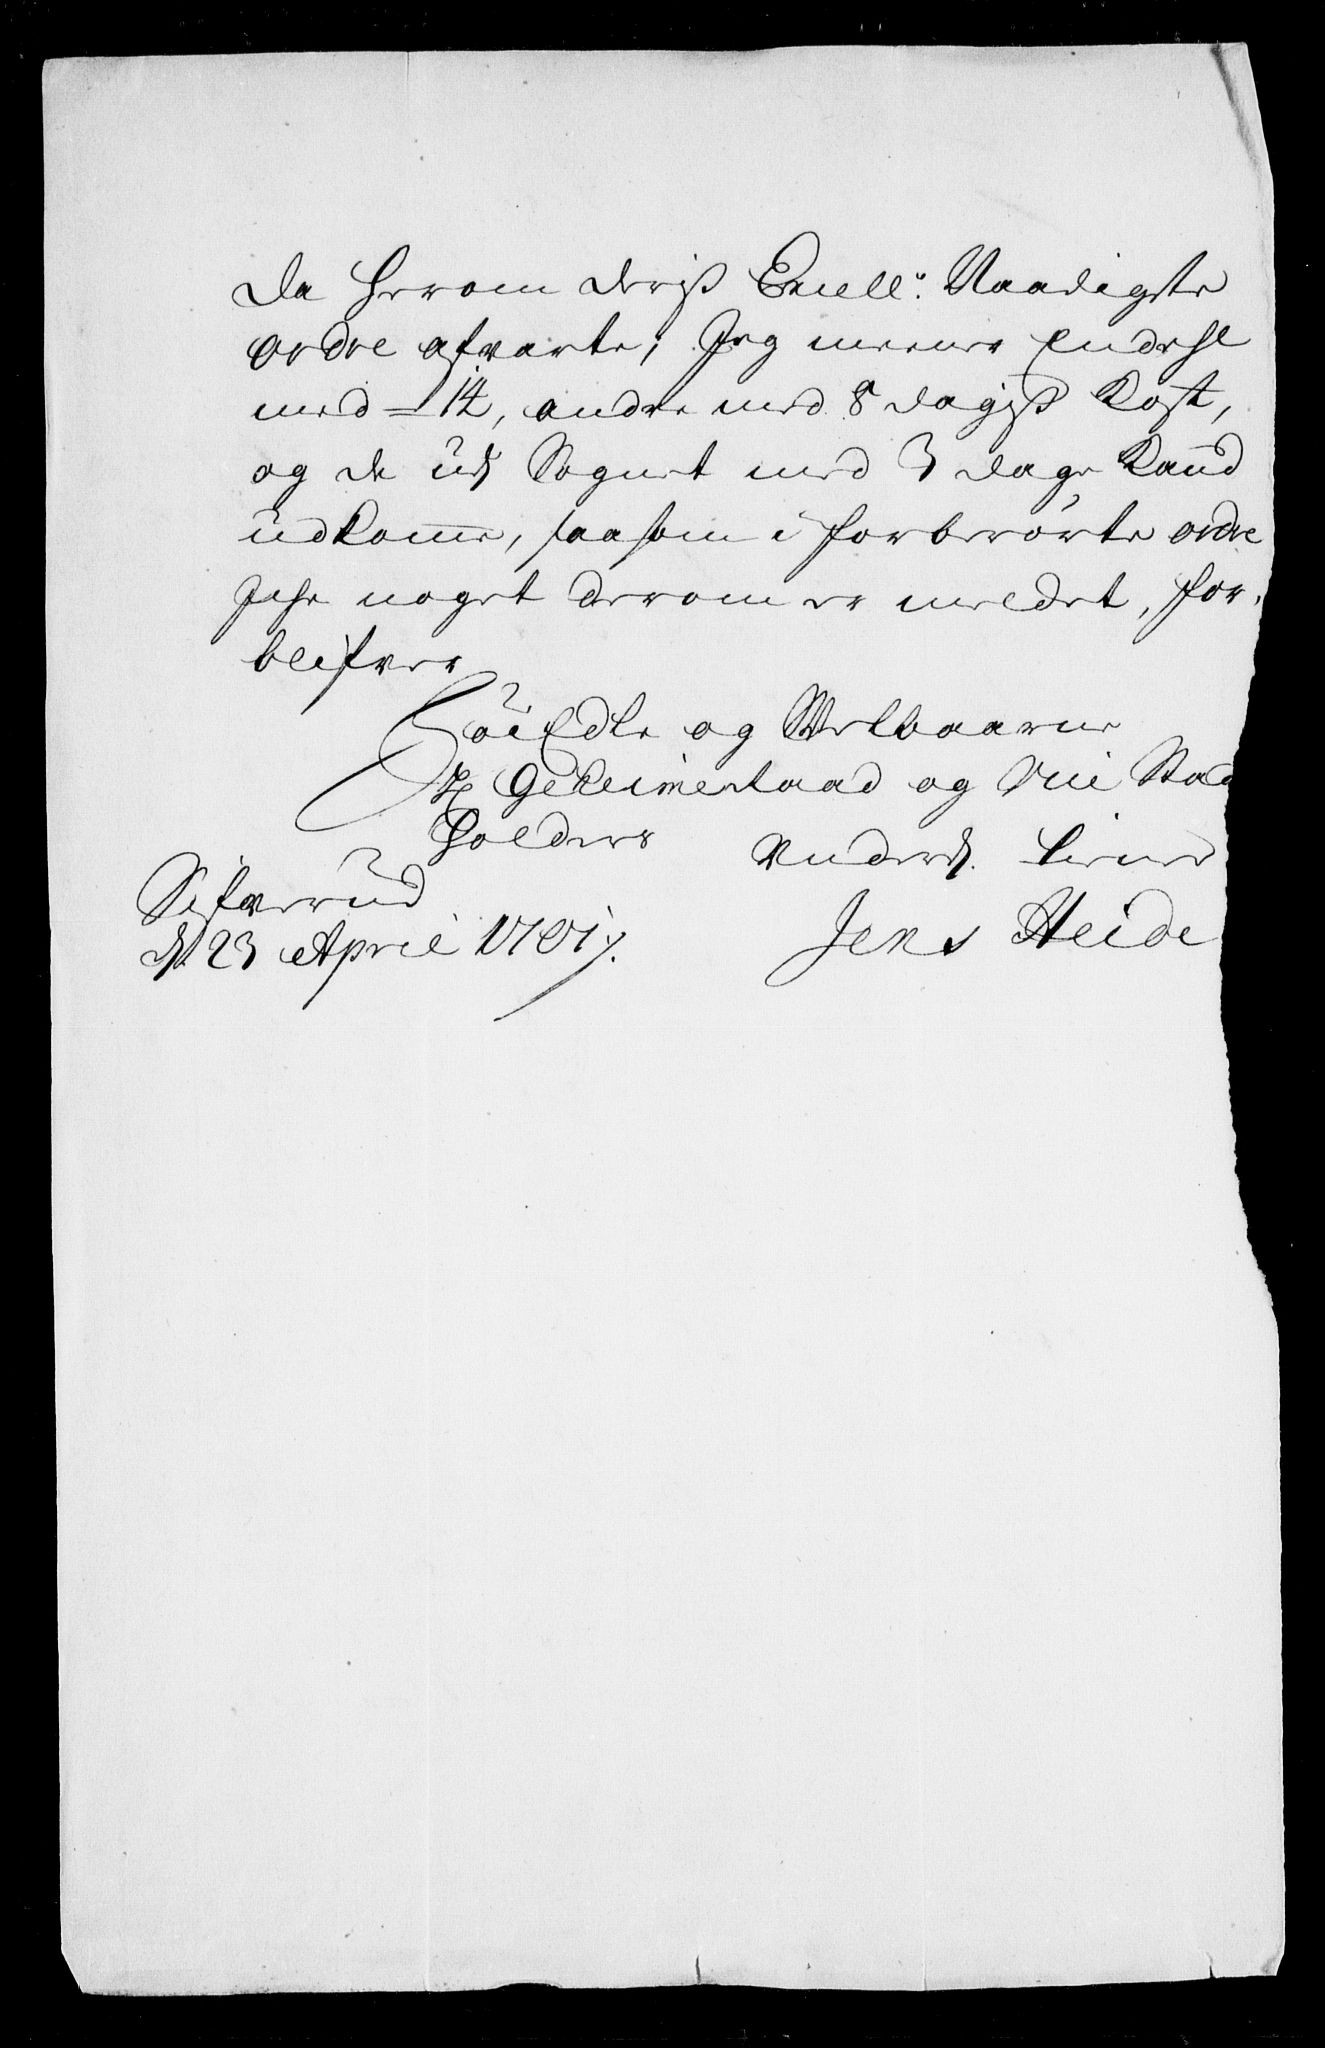 da herom deriß Excell: Naadigste
ordre afvarte; Jeg meener Endehl
med 14, andre med 8 dagiß Kost,
og de udj Sognet med 3 dage Kand
udkomme, saasom i forberørte ordre
Iche noget derom er meldet, for-
blifver
HøiEdle og Welbaarne
Hr Geheimeraad og Vice Stad
holders
underd. tiener
Jens Heide
Sifverud
d. 23 April 1701